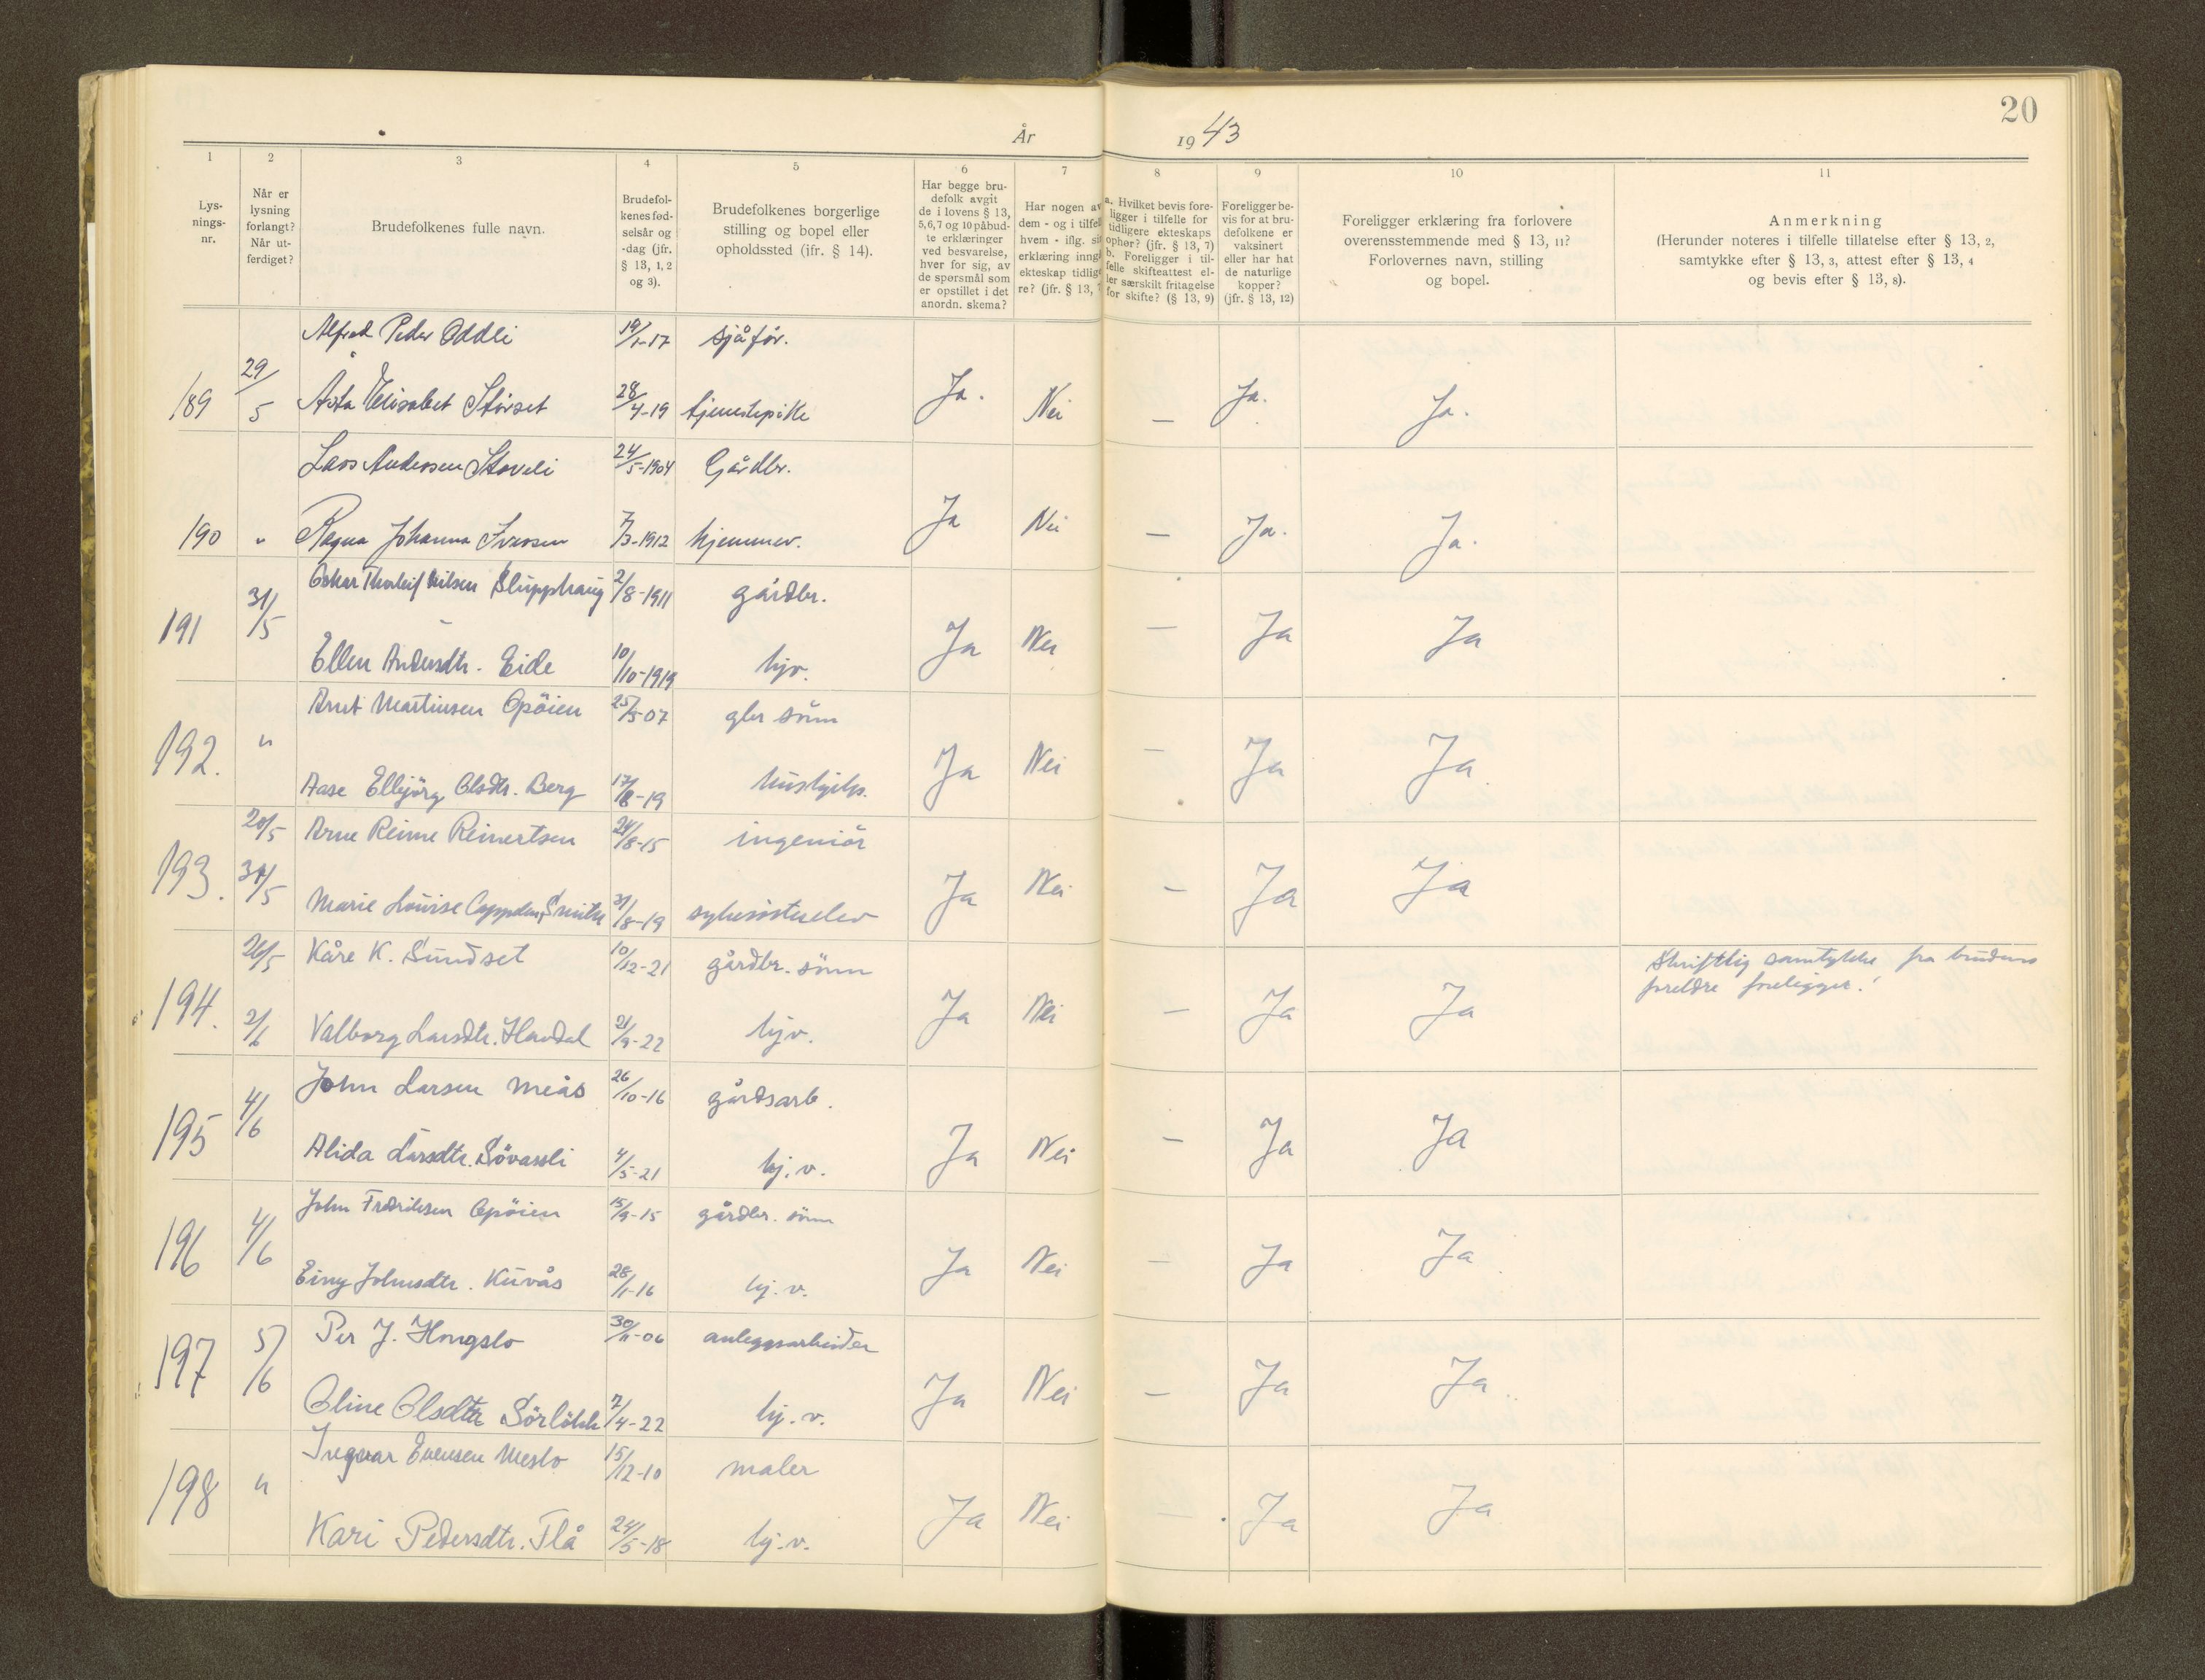 20
År 1943
1 2 3 4 5 6 7 8 9 10 11
Lys-
nings-
nr.
Når er
lysning
forlangt?
Når ut-
ferdiget?
Brudefolkenes fulle navn.
Brudefol-
kenes fød-
selsår og
-dag (jfr.
§ 13, 1, 2
og 3).
Brudefolkenes borgerlige
stilling og bopel eller
opholdssted (ifr. § 14).
Har begge bru-
defolk avgit
de i lovens § 13,
5,6,7 og 10 påbud-
te erklæringer
ved besvarelse,
hver for sig, av
de spørsmål som
er opstillet i det
anordn. skema?
Har nogen av
dem - og i tilfell
hvem - iflg. sin
erklæring inngå
ekteskap tidlige
re? (jfr. § 13,
a. Hvilket bevis fore-
ligger i tilfelle for
tidligere ekteskaps
ophør? (jfr. § 13, 7)
b. Foreligger i til-
felle skifteattest el-
ler særskilt fritagelse
for skifte? (§ 13, 9)
Foreligger be-
vis for at bru-
defolkene er
vaksinert
eller har hat
de naturlige
kopper?
(jfr. § 13, 12)
Foreligger erklæring fra forlovere
overensstemmende med § 13, 11?
Forlovernes navn, stilling
og bopel.
Anmerkning
(Herunder noteres i tilfelle tillatelse efter § 13, 2,
samtykke efter § 13, 3, attest efter § 13, 4
og bevis efter § 13, 8).
Alfred Peder Oddli 19/1-17 sjåför.
189 29/5 Asta Elisabet Störset 28/4-19 tjenestepike Ja. Nei — Ja. Ja.
Lars Andersen Stoveli 24/5-1904 Gårdbr.
190 " Ragna Johanna Iversen 7/3-1912 hjemmev. Ja Nei — Ja. Ja.
Oskar Thorleif Nilsen Slupphaug 2/8-1911 gårdbr.
191 31/5 Ja Nei — Ja Ja
Ellen Andersdtr. Eide 10/10-1919 hjv.
Arnt Martinsen Opöien 25/5-07 gbr sönn
192. " Ja Nei — Ja Ja
Aase Elbjörg Olsdtr. Berg 17/8-19 hushjelp.
20/5 Arne Reime Reinertsen 24/8-15 ingeniör
193. 31/5 Ja Nei — Ja Ja
Marie Louise Cappelen Smith 31/8-19 sykesösterelev
26/5 Kåre K. Sundset 10/12-21 gårdbr. sönn Skriftlig samtykke fra brudens
foreldre foreligger!
194. 2/6 Valborg Larsdtr. Havdal 21/9-22 hjv. Ja Nei — Ja Ja
John Larsen Meås 26/10-16 gårdsarb.
195 4/6 Ja Nei — Ja Ja
Alida Larsdtr. Sövassli 4/5-21 hj. v.
John Fredriksen Opöien 15/9-15 gårdbr. sönn
196 4/6 Ja Nei — Ja Ja
Einy Johnsdtr. Kuvås 28/1-16 hj. v.
Per J. Hongslo 30/11-06 anleggsarbeider
197 5/6 Ja Nei — Ja Ja
Oline Olsdtr Sörlökk 7/4-22 hj. v.
Ingvar Evensen Meslo 15/12-10 maler
198 " Ja Nei — Ja Ja
Kari Pedersdtr. Flå 24/5-18 hj. v.